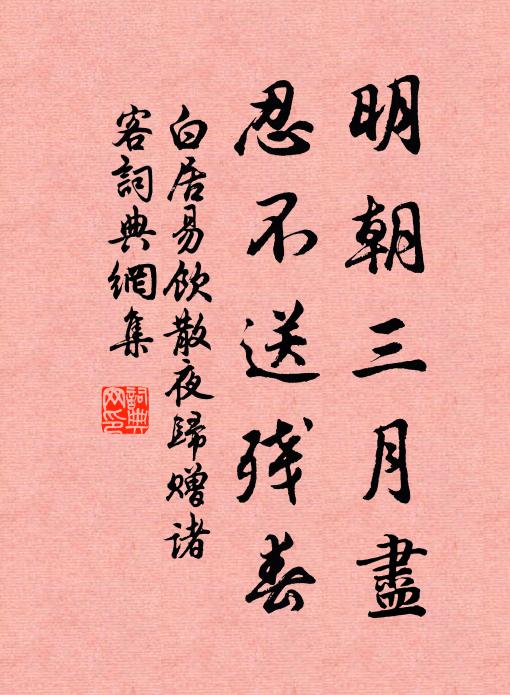 明朝三月盡
忍不送残春
白居易飲散夜歸赠诸
客詞典網集
詞典
网印